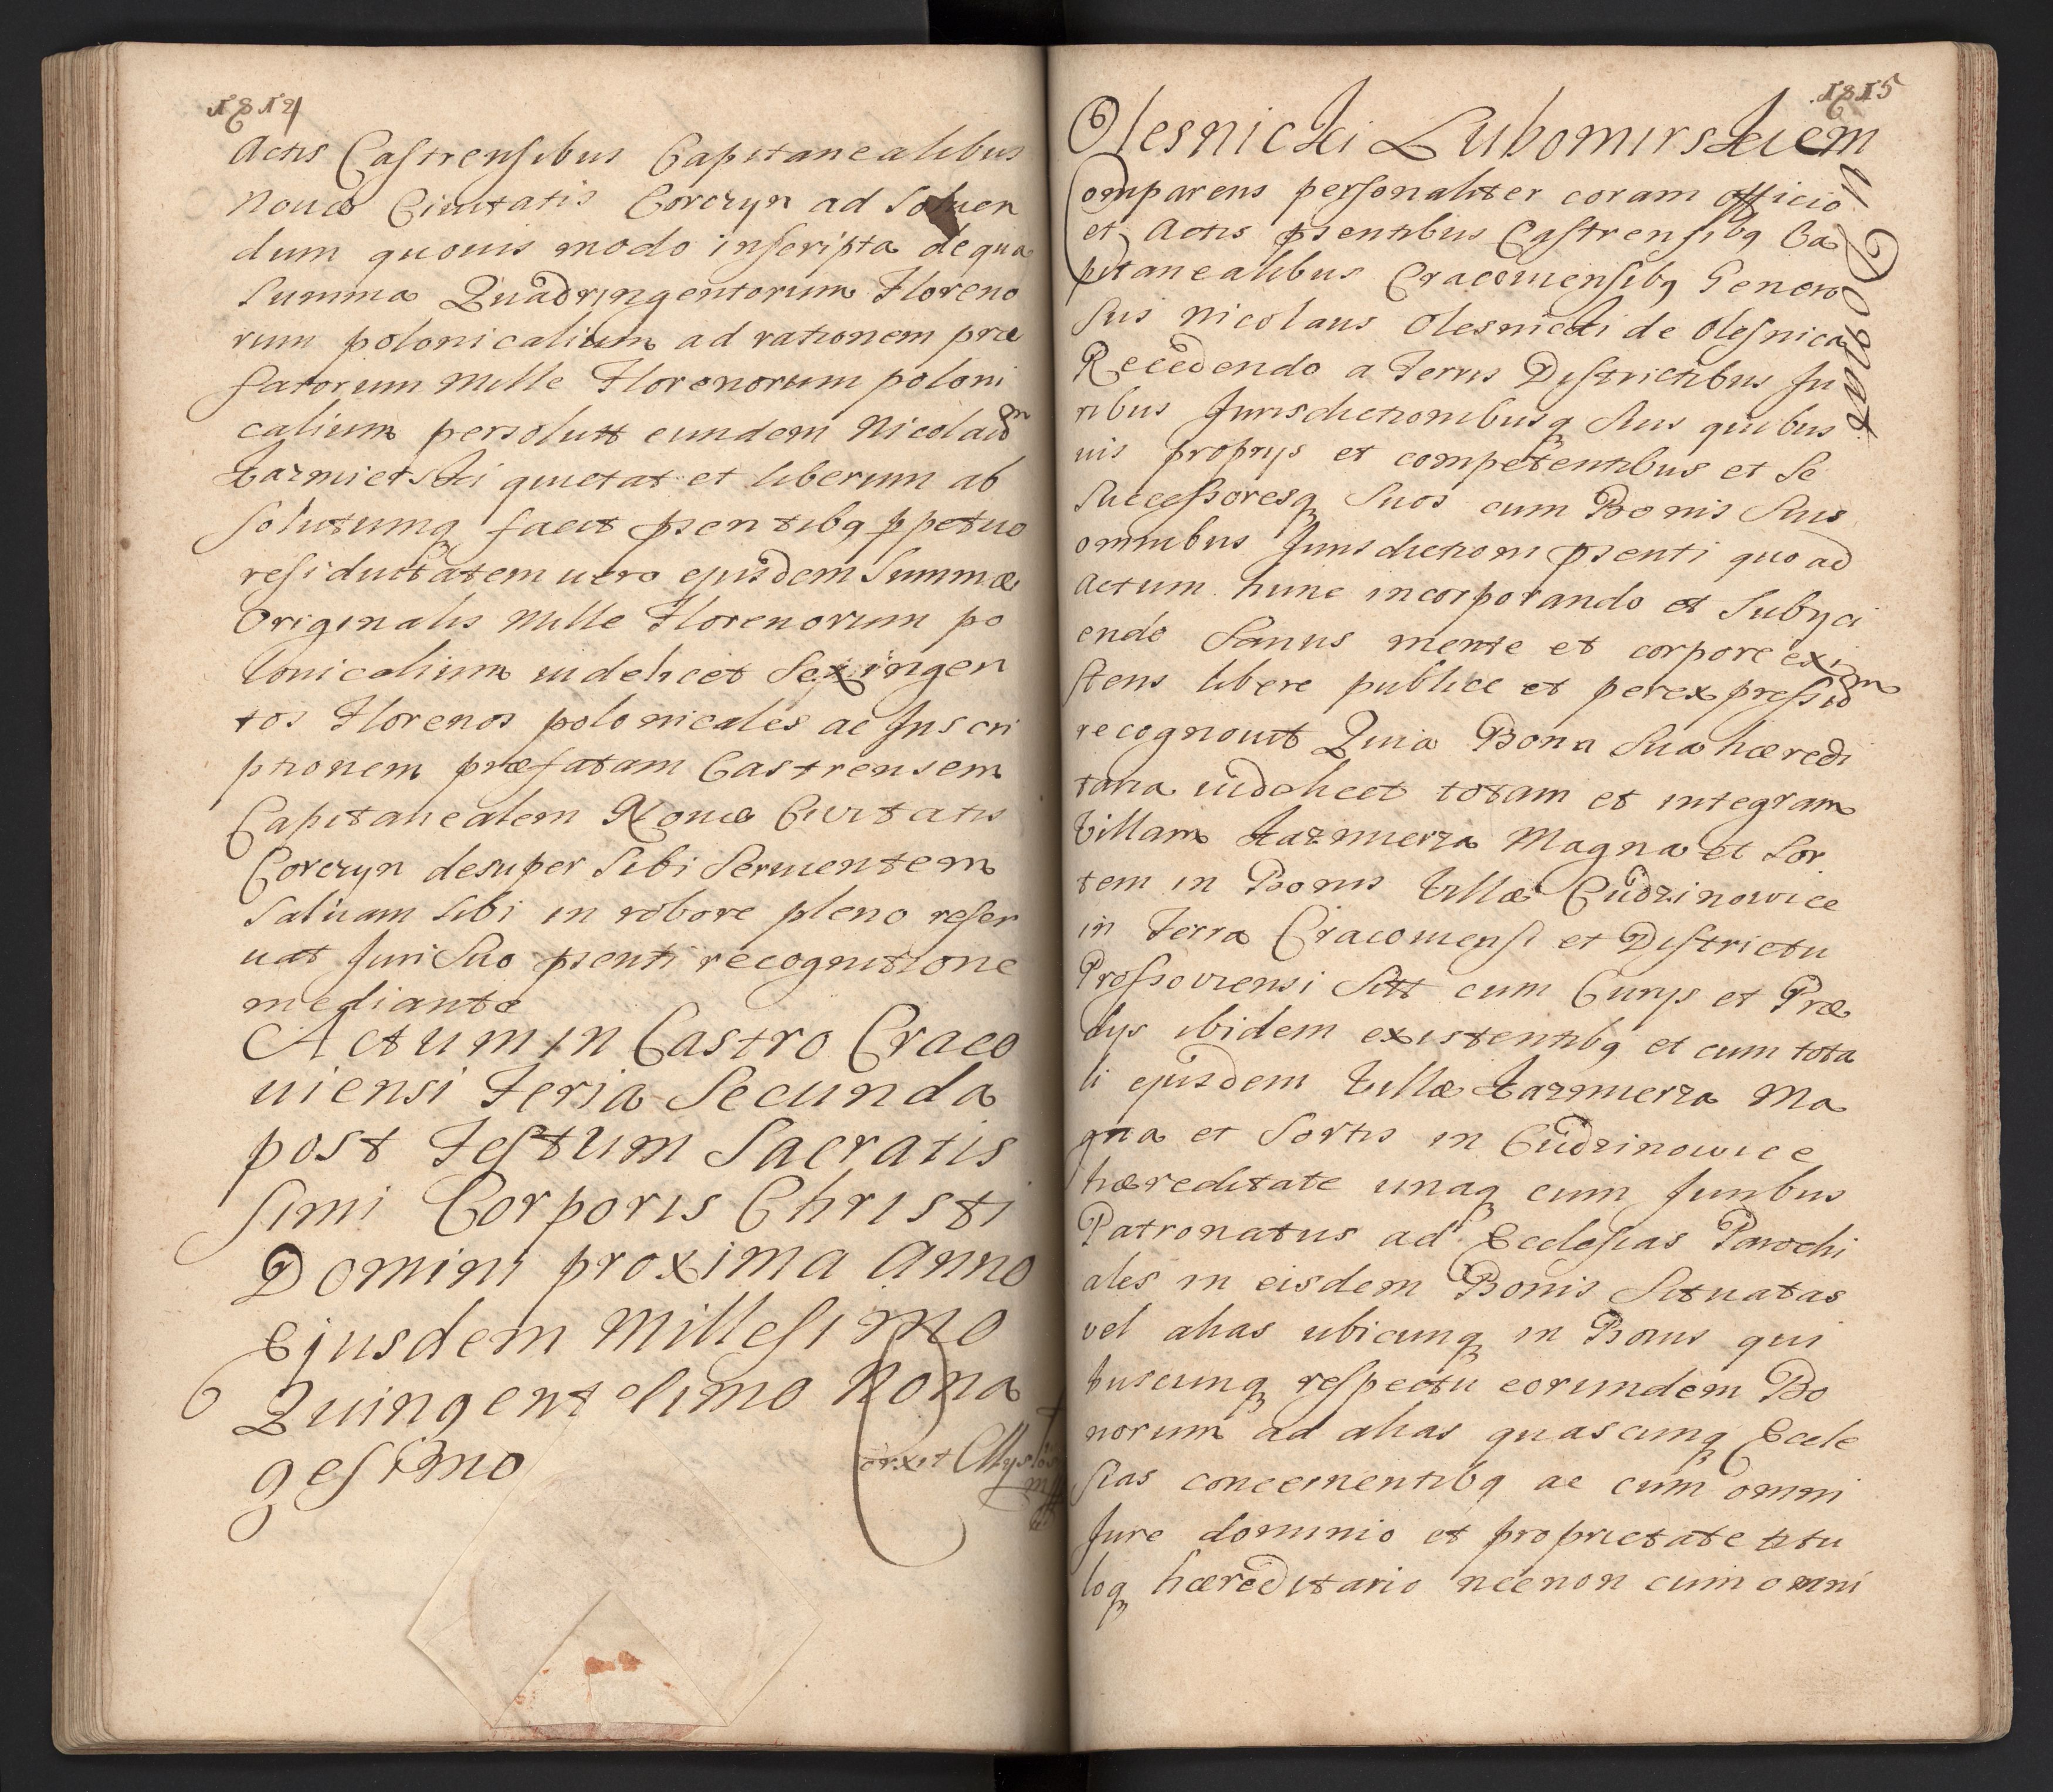 1814
Actis Castrensibus Capitanealibus
Nouæ Ciuitatis Corczyn ad Soluen
dum quouis modo inscripta de qua
Summa Quadringentorum Floreno
rum polonicalium ad rationem præ
fatorum Mille Florenorum poloni
calium persolutt eundem Nicolaum
Kazmierski quietat et liberum ab
solutumq facit psentibq ppetuo
residuitatem uero ejusdem Summæ
Originalis Mille Florenorum po
lonicalium uidelicet Sexingen
tos Florenos polonicales ac Inscri
ptionem præfatam Castrensem
Capitanealem Nouæ Ciuitatis
Corczyn desuper Sibi Seruientem
Saluam Sibi in robore pleno reser
uat Juri Suo psenti recognitione
mediante
Actum in Castro Craco
uiensi Feria Secunda
post Festum Sacratis
simi Corporis Christi
Domini proxima Anno
Ejusdem Millesimo
Quingentesimo Nona
gesimo
1815
Olesnicki Lubomirskiem
u Donat
Comparens personaliter coram officio
et Actis psentibus Castrensibq Ca
pitanealibus Cracouiensibq Genero
sus Nicolaus Olesnicki de Olesnica
Recedendo a Terris Districtibus Ju
ribus Jurisdictionibusq Suis quibus
uis proprys et competentibus et Se
Successoresq Suos cum Bonis Suis
omnibus Jurisdictioni psenti quo ad
actum hunc incorporando et Subyci
endo Sanus mente et corpore exi
stens libere publice et per expressum
recognouit Quia Bona Sua hæredi
taria uidelicet totam et integram
Villam Kazmierza Magna et Sor
tem in Bonis Villæ Cudzinowice
in Terra Cracouiensi et Districtu
Prossouiensi Sitt cum Curys et Præ
dys ibidem existentibq et cum tota
li ejusdem Villæ Kazmierza Ma
gna et Sortis in Cudzinowice
hæreditate unaq cum Juribus
Patronatus ad Ecclesias Parochi
ales in eisdem Bonis Situatas
vel alias ubicunq in Bonis qui
buscunq respectu eorundem Bo
norum ad alias quascunq Eccle
sias concernentibq ac cum omni
Jure dominio et proprietate titu
loq hæreditario necnon cum omni